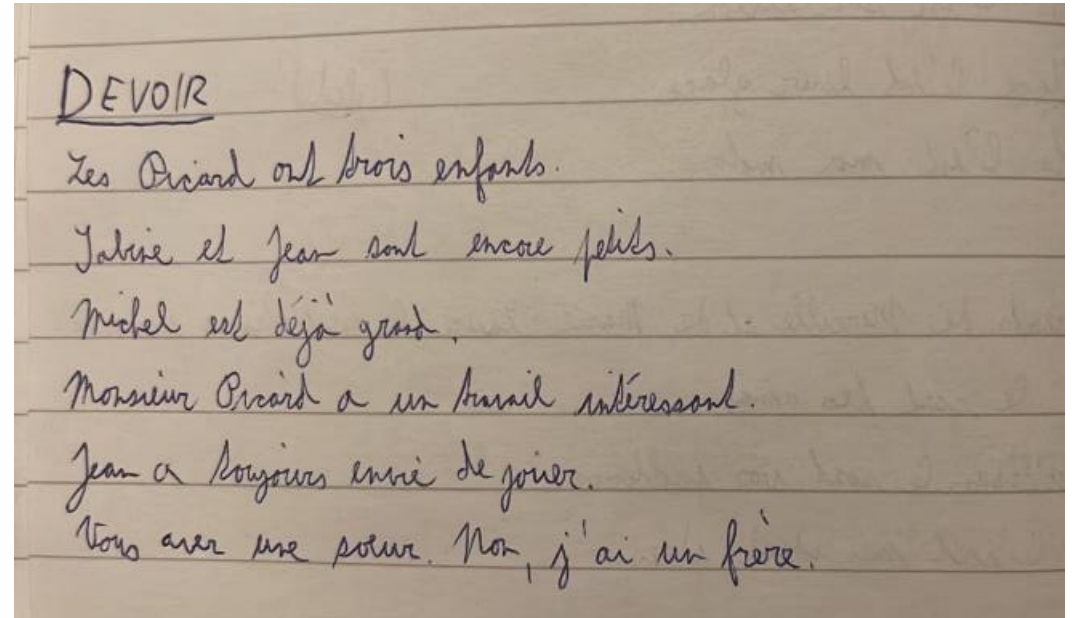 DEVOIR
Les Picard ont trois enfants.
Sabine et Jean sont encore petits.
Michel est déjà grand.
Monsieur Picard a un travail intéressant.
Jean a toujours envie de jouer.
Vous avez une soeur. Non, j'ai un frère.